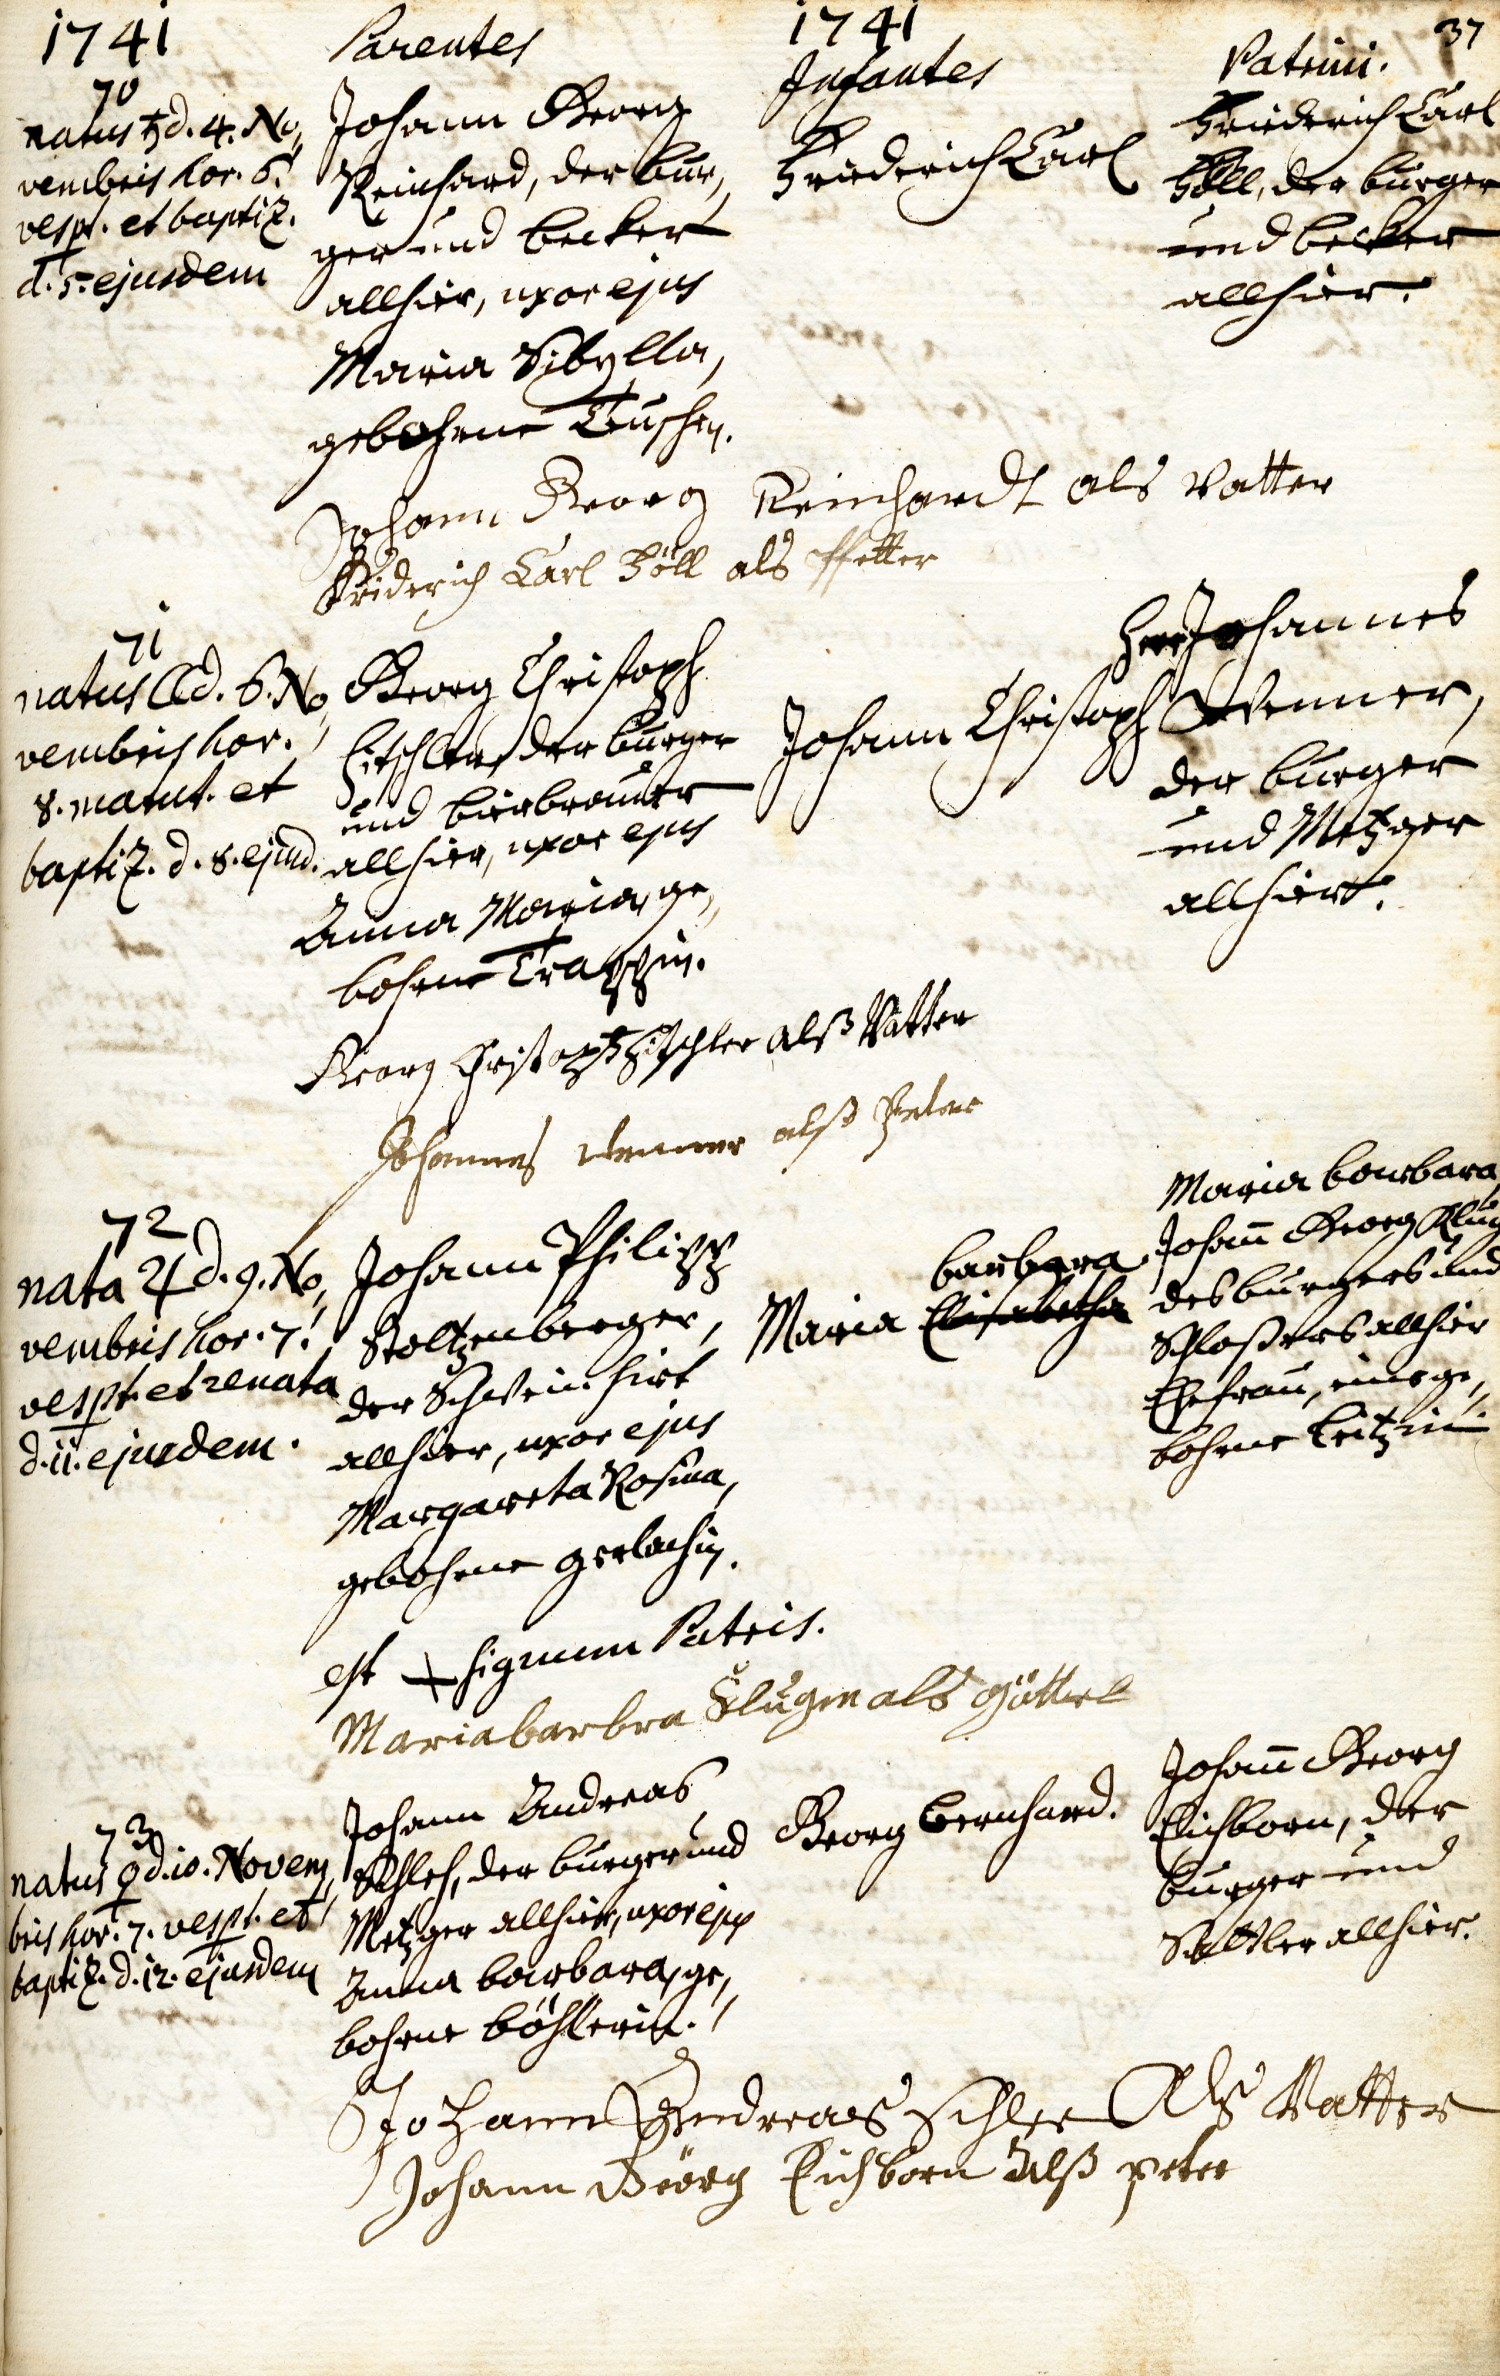 1741 Parentes 1741 Infantes Patrini. 37
70
natus ♄ d. 4. No,
vembris hor. 6.
vespt. et baptiz.
d. 5. ejusdem
Johann Georg
Reinhard, der bur,
ger und becker
allhier, uxor ejus
Maria Sibylla,
gebohrne Tuschin.
Friederich Carl
Friederich Carl
Zöll, der burger
und becker
allhier.
Johann Georg Reinhardt als Vatter
Friderich Carl Zöll als Pfetter
71
natus ☾ d. 6. No,
vembris hor.
8. matut. et
baptiz. d. 8. ejusd.
Georg Christoph
Hitschler, der burger
und bierbrauer
allhier, uxor ejus
Anna Maria, ge,
bohrne Trappin.
Johann Christoph
Herr Johannes
Wenner,
der burger
und Metzger
allhier.
Georg Christoph Hitschler alß Vatter
Johannes Wenner alß Peter
72
nata ♃ d. 9. No,
vembris hor. 7.
vespt. et renata
d. 11. ejusdem.
Johann Philipp
Stoltzenberger,
der Schwein hirt
allhier, uxor ejus
Margareta Rosina,
gebohrne Gerlachin.
barbara
Maria Elisabetha
Maria barbara,
Johann Georg Klug
des burgers und
Schloßers allhier
Ehefrau, eine ge,
bohrne Leitzin
est + signum Patris.
Maria barbra Klugin als Göttel
73
natus ♀ d. 10. Novem,
bris hor. 7. vespt. et
baptiz. d. 12. ejusdem
Johann Andreas
Schleh, der burger und
Metzger allhier, uxor ejus
Anna barbara, ge,
bohrne böhlerin.
Georg bernhard.
Johann Georg
Eichborn, der
burger und
Sattler allhier.
Johann Andreas Schlee Alß Vatter
Johann Georg Eichborn alß peter